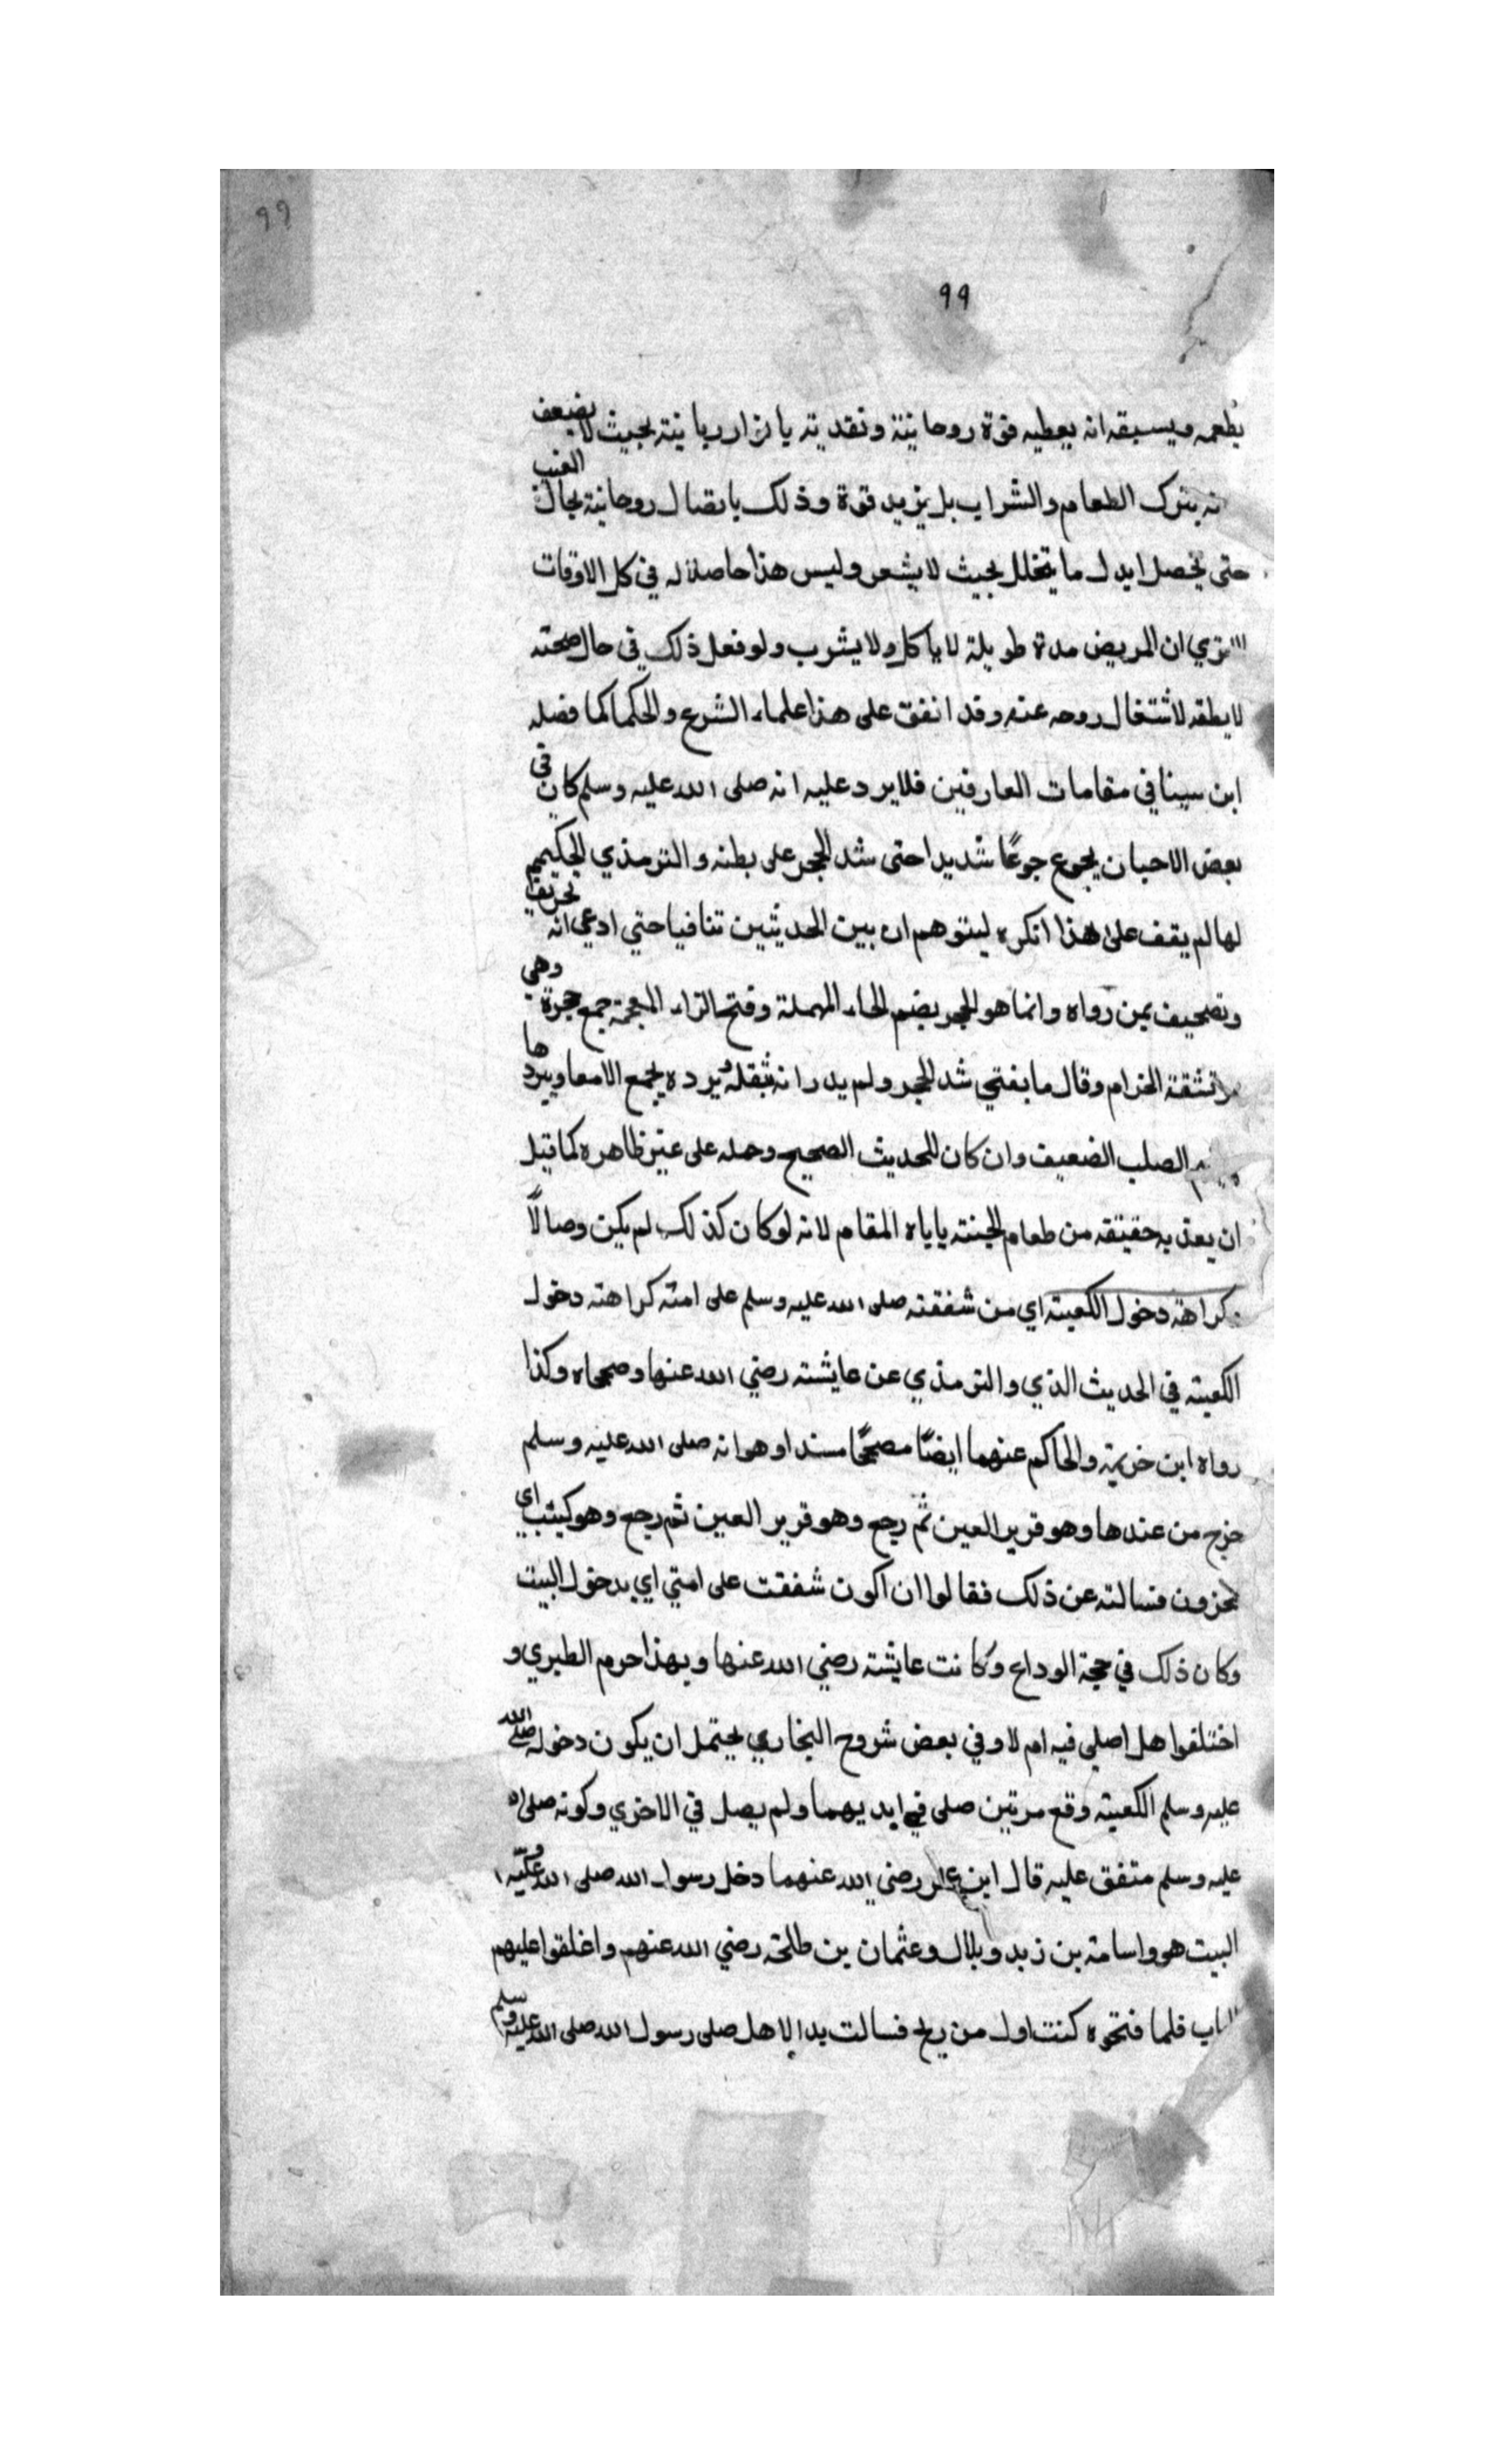 ٩٩
٩٩
يطعمه ويسبقه انه يعطيه قوة روحانية ونقديته يانزار ربانية بحيث لا يضعف
نه بترك الطعام والشراب بل يزيد قوة وذلك باتصال روحانية بحال الغيب
حتى يحصل ايدل ما يتخلل بحيث لا يشعر وليس هذا حاصلا له في كل الاوقات
تري ان المريض مدة طويلة لا ياكل ولا يشرب ولو فعل ذلك في حال صحته
لا يطقه لاشتغال روحه عنه وقد اتفق على هذا علماء الشرع والحكما كما فضله
ابن سينا في مقامات العارفين فلا يرد عليه انه صلى الله عليه وسلم كان في
بعض الاحيان يجوع جوعًا شديدا حتى شد الحجر على بطنه والترمذي الحكيم
لها لم يقف على هذا انكره ليتوهم ان بين الحديثين تنافيا حتي ادعي انه تحريف
وتصحيف يمن رواه وانما هو الحجر بضم الحاء المهملة وفتح الزاء المعجمة جمع حجرة وهي
تشقة الحزام وقال ما يفتي شد الحجر ولم يدر انه بثقله يرده يجمع الامعا ويبردها
الصلب الضعيف وان كان الحديث الصحيح وحمله على غير ظاهره كما قيل
ان يعذ به حقيقه من طعام الجنته ياباه المقام لانه لو كان كذلك لم يكن وصالاً
كراهة دخول الكعبته اي من شفقته صلى الله عليه وسلم على امته كراهته دخول
الكعبته في الحديث الذي والترمذي عن عايشته رضي الله عنها وصححاه وكذا
رواه ابن خزيمة والحاكم عنهما ايضًا مصححًا مسندا وهو انه صلى الله عليه وسلم
خرج من عندها وهو قرير العين ثم رجع وهو قرير العين ثم رجع وهو كيئب اي
محزون فسالته عن ذلك فقالوا ان اكون شفقت على امتي اي بدخول البيت
وكان ذلك في حجة الوداع وكانت عايشته رضي الله عنها وبهذا حرم الطبري و
اختلفوا هل اصلي فيه ام لا وفي بعض شروح البخاري يحتمل ان يكون دخوله صلى الله
عليه وسلم الكعبته وقع مرتين صلى في ايديهما ولم يصل في الاخري وكونه صلى
عليه وسلم متفق عليه قال ابن عمر رضي الله عنهما دخل رسول الله صلى الله عليه و
البيت هو واسامة بن زيد وبلال وعثمان بن طلحة رضي الله عنهم واغلقوا عليهم
الباب فلما فتحوه كنت اول من يلج فسالت بدالا هل صلى رسول الله صلى الله عليه وسلم